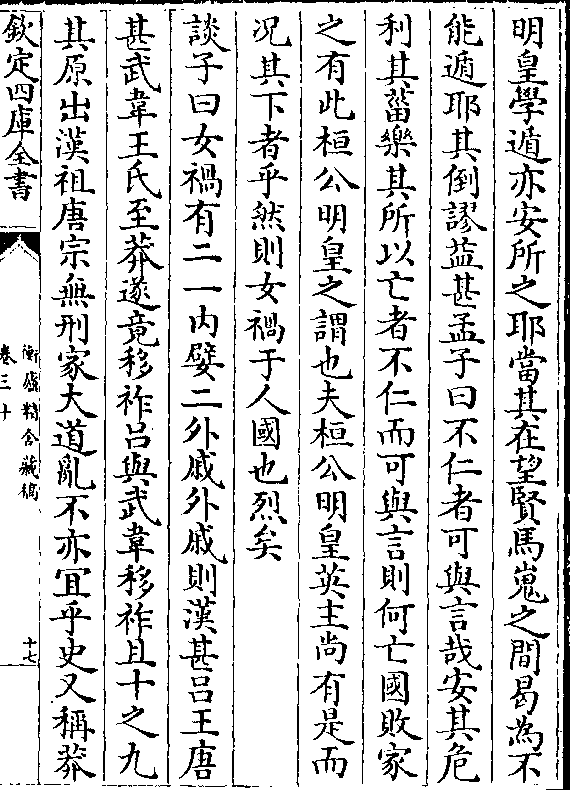 明皇學遁亦安所之耶當其在望賢馬嵬之間曷為不
能遁耶其倒謬葢甚孟子曰不仁者可與言哉安其危
利其菑樂其所以亡者不仁而可與言則何亡國敗家
之有此桓公明皇之謂也夫桓公明皇英主尚有是而
况其下者乎然則女禍于人國也烈矣
談子曰女禍有二一内嬖二外戚外戚則漢甚吕王唐
甚武韋王氏至莽遂竟移祚吕與武韋移祚且十之九
其原出漢祖唐宗無刑家大道亂不亦宜乎史又稱莽
欽定四庫全書
衡廬精舍藏稿
卷三十
十七